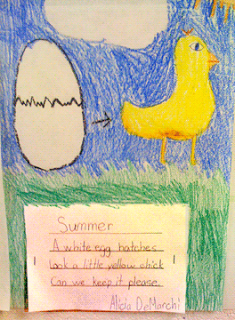 Summer
A white egg hatches
Look a little yellow chick
Can we keep it please.
Alicia DeMarchi